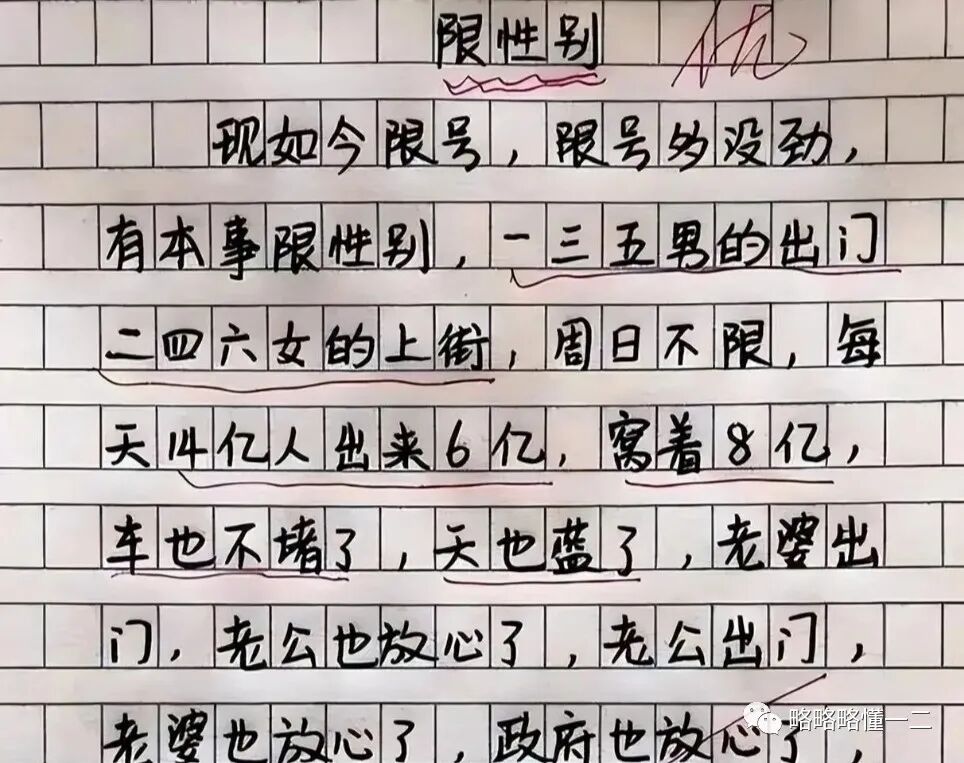 限性别 优
现如今限号，限号多没劲，
有本事限性别，一三五男的出门
二四六女的上街，周日不限，每
天14亿人出来6亿，窝着8亿，
车也不堵了，天也蓝了，老婆出
门，老公也放心了，老公出门，
老婆也放心了，政府也放心了，
略略略懂一二